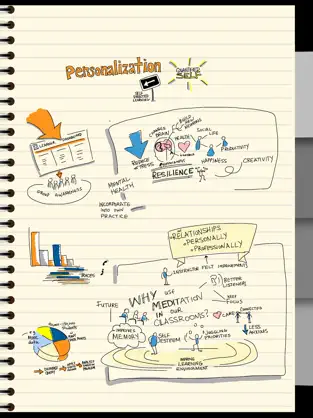 Personalization
QUANTIFIED
SELF
SELF
DIRECTED
LEARNING
LEARNER DASHBOARD
CHANGE
BRAIN
BUILD
NEW
HEALTH
SOCIAL
LIFE
PRODUCTIVITY
REDUCE
STRESS
HAPPINESS
RESILIENCE
CREATIVITY
MENTAL
HEALTH
INCORPORATE
INTO OWN
PRACTICE
RELATIONSHIPS
PERSONALLY
PROFESSIONALLY
INSTRUCTOR FELT IMPROVEMENT
BETTER
LISTENER
KEEP
FOCUS
FUTURE
WHY USE
MEDITATION
IN OUR
CLASSROOMS?
CARE
CONNECTED
LESS
ANXIOUS
IMPROVES
MEMORY
SELF
ESTEEM
JUGGLING
PRIORITIES
LEARNING
ENVIRONMENT
MORE
DATA